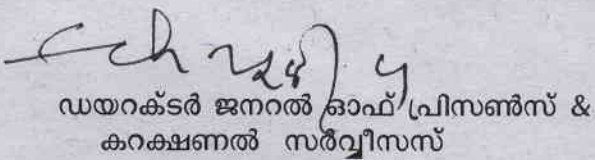 ഡയറക്ടർ ജനറൽ ഓഫ് പ്രിസൺസ് &
കറക്ഷണൽ സർവ്വീസസ്